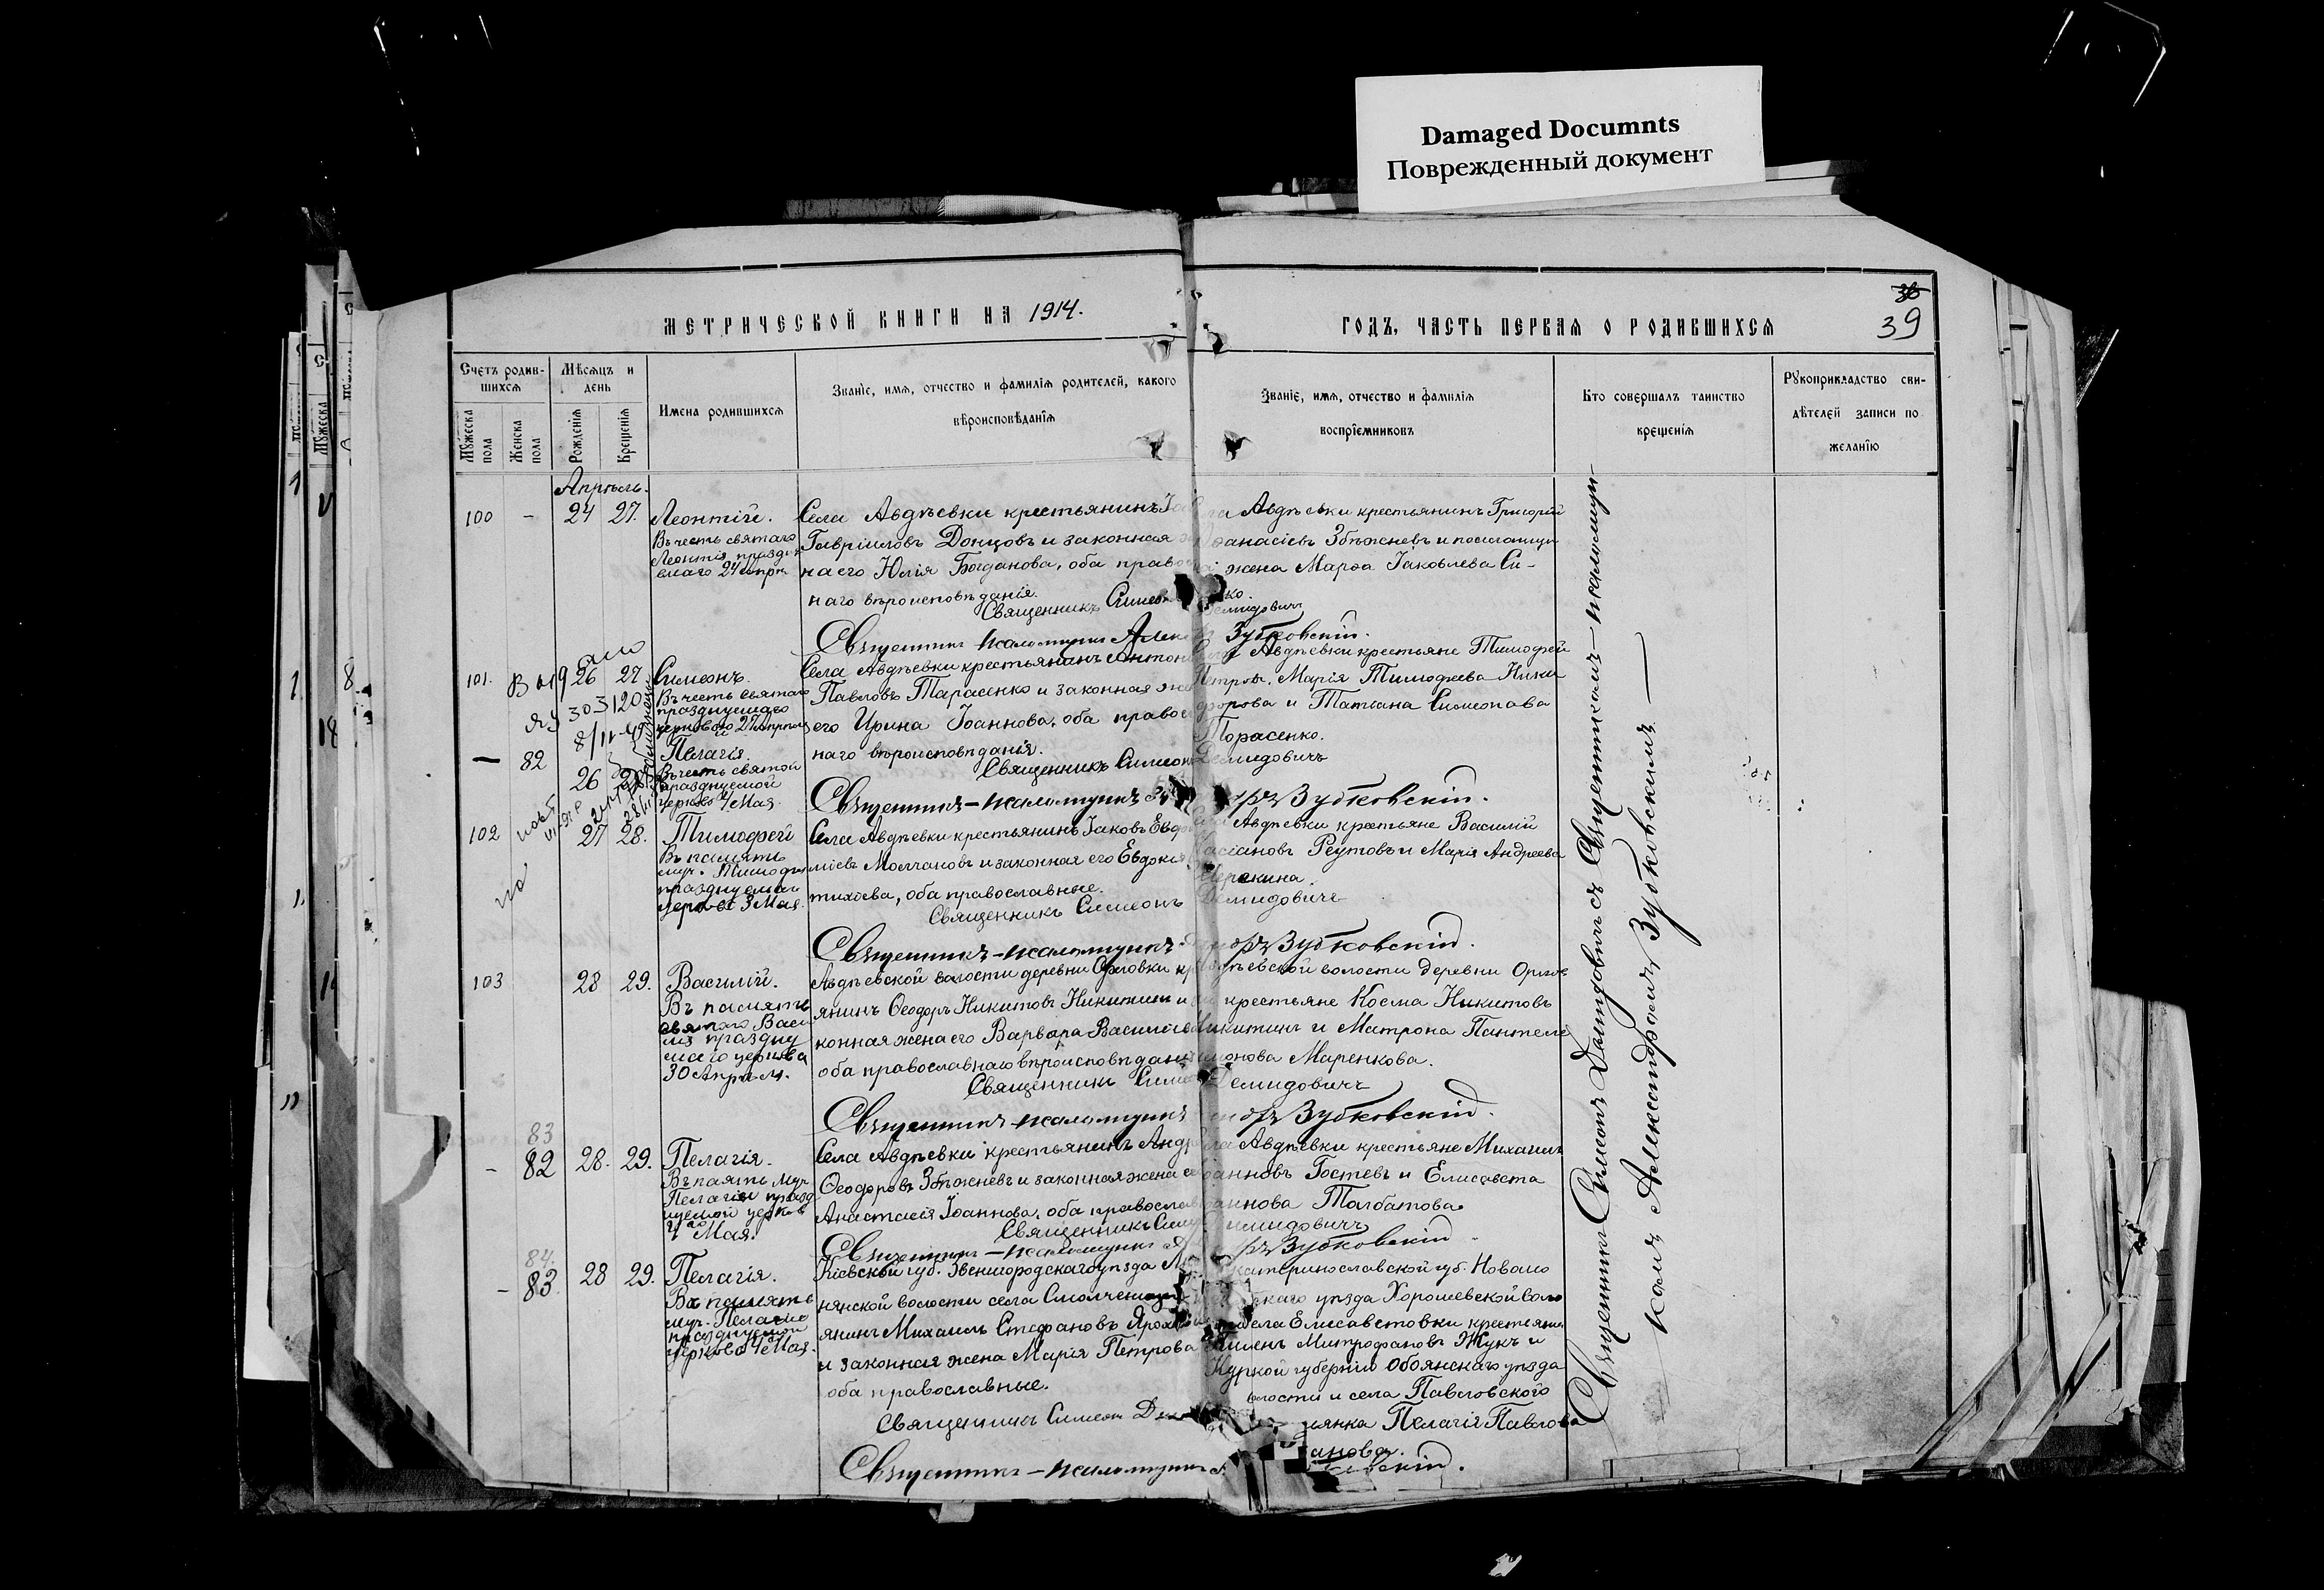 Damaged Documnts
Поврежденный документ
МЕТРИЧЕСКОЙ КНИГИ НА 1914.
ГОДЪ, ЧАСТЬ ПЕРВАЯ О РОДИВШИХСЯ
36
39
Счетъ родив-
шихся
Мужеска пола
Женска пола
Мѣсяцъ и
день
Рожденія
Крещенія
Имена родившихся
Званіе, имя, отчество и фамилія родителей, какого
вѣроисповѣданія
Званіе, имя, отчество и фамилія
воспріемниковъ
Кто совершалъ таинство
крещенія
Рукоприкладство сви-
дѣтелей записи по
желанію
Апрѣль.
100 - 24 27.
Леонтій.
Въ честь святаго
Леонтія праздн
емаго 24 Апрѣ
Села Авдѣевки крестьянинъ
Гавріиловъ Донцовъ и законная
на его Юлія Богданова, оба право
наго вѣроисповѣданія.
Священникъ Симеон
Авдѣевки крестьянинъ Григорій
Збѣжневъ и
жена Марѳа Іаковлева Си-
ко.
Демидовичъ
Священникъ-псаломщикъ Алек
Зубковскій.
101. 26 27
Симеонъ.
Въ честь святаго
празднуемаго
церковію 27 Апрѣля
Села Авдѣевки крестьянинъ Антон
Павловъ Тарасенко и законная же
его Ирина Іоаннова, оба правос
наго вѣроисповѣданія.
Священникъ Симеон
Авдѣевки крестьяне Тимофей
Петровъ, Марія Тимофеева Ники
форова и Татіана Симеонова
Торасенко.
Демидовичъ
— 82 26 28
Пелагія
Въ честь святой
празднуемой
церков 4 Мая.
Священникъ-псаломщикъ
Зубковскій.
102 27 28.
Тимофей
Въ память
муч. Тимофея
празднуемаго
церков 3 Мая.
Села Авдѣевки крестьянинъ Іаковъ Евдо
міевъ Молчановъ и законная его Евдокія
тихіева, оба православные.
Священникъ Симеонъ
Авдѣевки крестьяне Василій
Касіановъ Реутовъ и Марія Андреева
Демидовичъ
Священникъ-псаломщикъ
Зубковскій.
103 28 29.
Василій.
Въ память
святаго Васи
лія праздну
маго церковію
30 Апрѣля.
Авдѣевской волости деревни Орловки кр
янинъ Ѳеодоръ Никитовъ Никитин и за
конная жена его Варвара Василіева
оба православнаго вѣроисповѣдані
Священникъ Симе
Авдѣевской волости деревни Орлов
крестьяне Косма Никитовъ
Никитинъ и Матрона Пантеле
имонова Маренкова.
Демидовичъ
Священникъ-псаломщикъ
Зубковскій.
83
- 82 28. 29.
Пелагія.
Въ паять муч
Пелагіи празд
нуемой церков
4го Мая.
Села Авдѣевки крестьянинъ Андр
Ѳеодоровъ Збѣжневъ и законная жена е
Анастасія Іоаннова, оба православ
Священникъ Сим
Авдѣевки крестьяне Михаилъ
Іоанновъ Гостевъ и Елисавета
Іоаннова Толбатова
Демидовичъ
Священникъ-псаломщикъ
Зубковскій
84.
- 83. 28 29.
Пелагія.
Въ память
муч. Пелагіи
празднуемой
церковію 4 Мая.
Кіевской губ. Звенигородскаго уѣзда
нянской волости села
янинъ Михаилъ Стефановъ
и законная жена Марія Петрова
оба православные.
Священникъ Симеон Дем
Екатеринославской губ. Новомо
скаго уѣзда Хорошевской воло
села Елисаветовки крестьяни
Пименъ Митрофановъ Жукъ и
Курской губерніи Обоянскаго уѣзда
волости и села Павловского
янка Пелагія Павлова
анова.
Священникъ-псаломщикъ
Священникъ Симеонъ Демидовичъ съ Священникомъ-псаломщи-
комъ Александромъ Зубковскимъ —